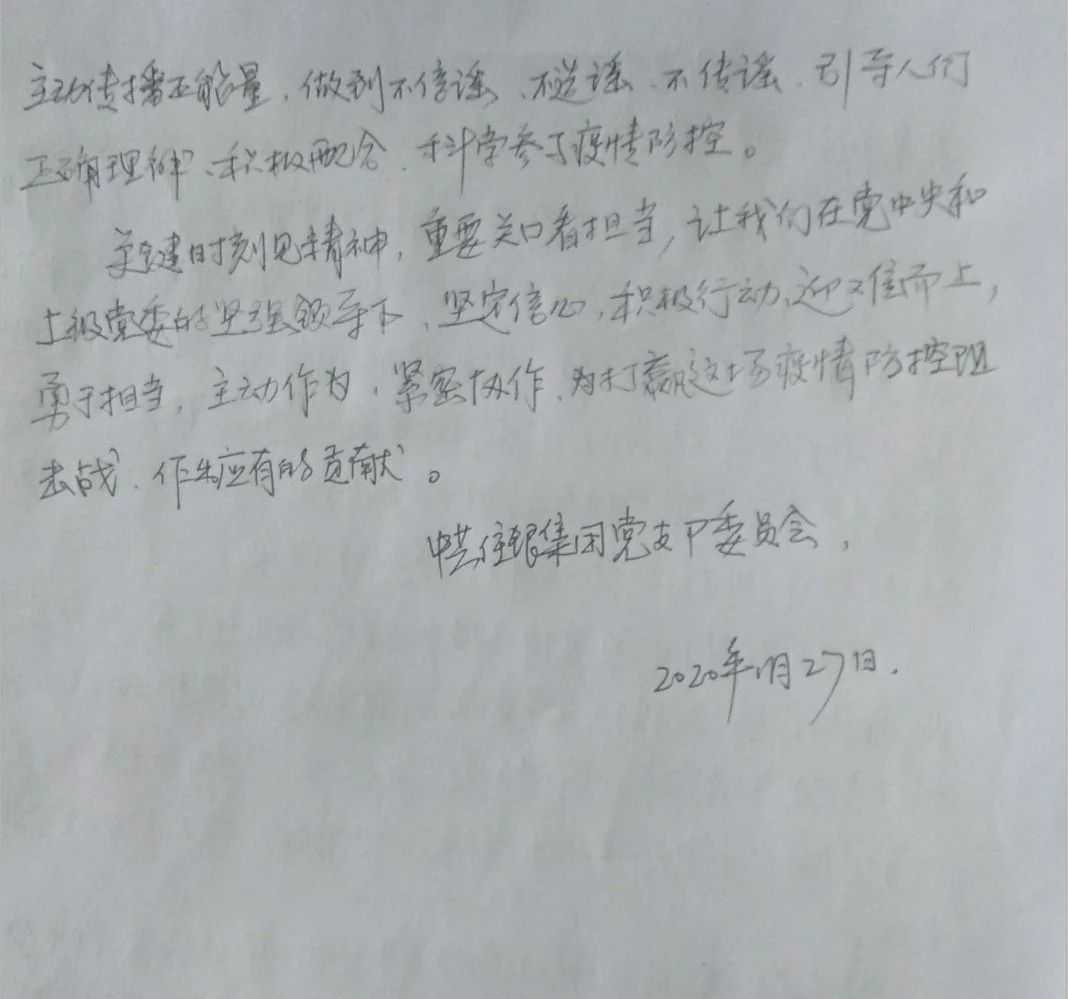 主动传播正能量、做到不信谣、不造谣、不传谣、引导人们
正确理解、积极配合、科学参与疫情防控。
关键时刻见精神，重要关口看担当，让我们在党中央和
上级党委的坚强领导下、坚定信心，积极行动、迎难而上，
勇于担当，主动作为、紧密协作、为打赢这场疫情防控阻
击战、作出应有的贡献。
中共住银集团党支部委员会，
2020年1月27日.